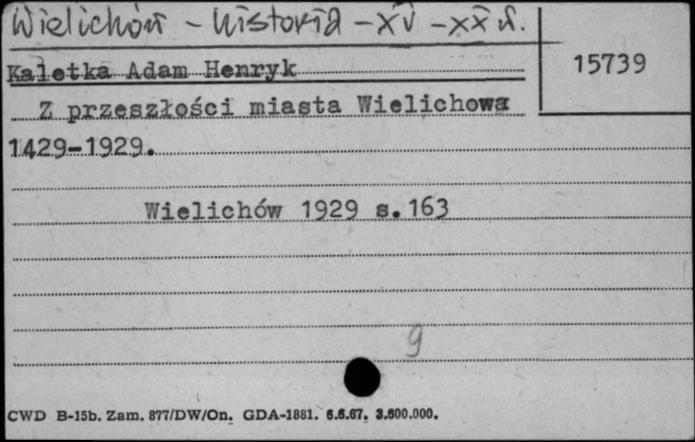 Wielichów - historia - XV - XX w.
Kaletka Adam Henryk
15739
Z przeszłości miasta Wielichowa
1429-1929.
Wielichów 1929 s.163
9
CWD B-15b. Zam. 877/DW/On. GDA-1881. 6.6.67. 3.600.000.